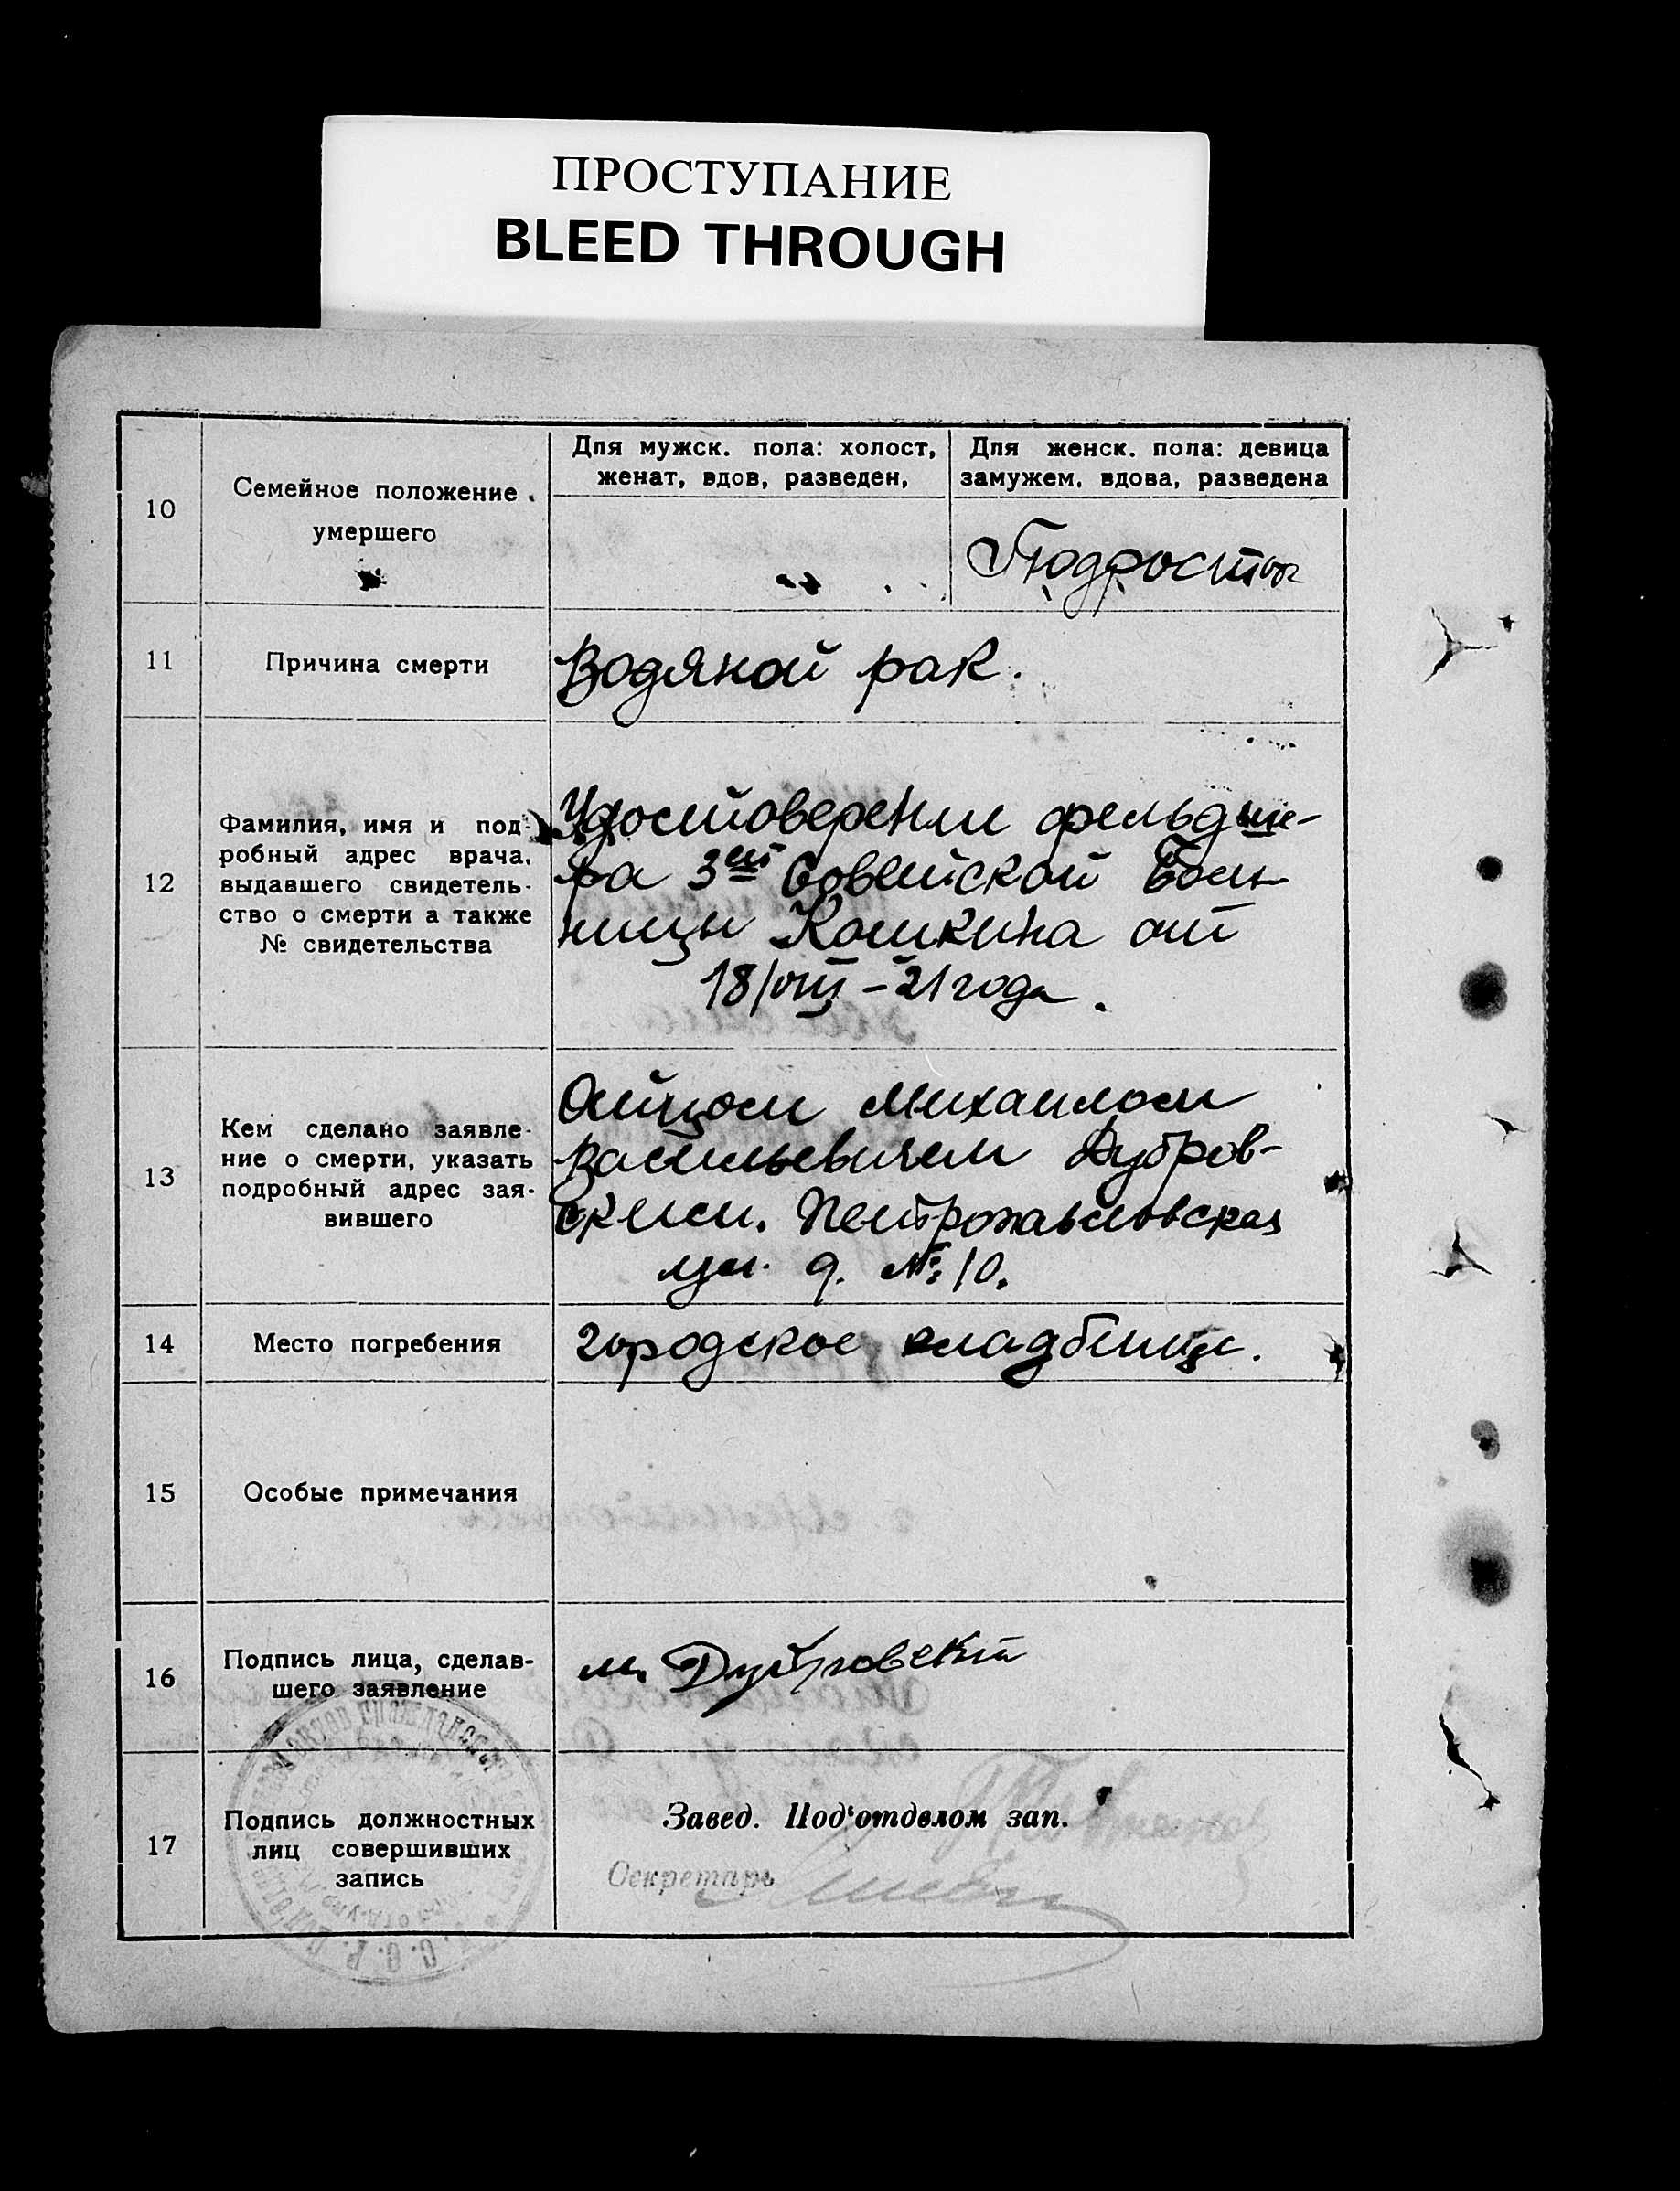 ПРОСТУПАНИЕ
BLEED THROUGH
10
Семейное положение
умершего
Для мужск. пола: холост,
женат, вдов, разведен,
Для женск. пола: девица
замужем, вдова, разведена
Подросток
11
Причина смерти
Водяной рак.
12
Фамилия, имя и под-
робный адрес врача,
выдавшего свидетель-
ство о смерти а также
№ свидетельства
Удостоверение фельдше-
ра 3ей Советской Боль
ницы Кошкина от
18/VIII-21 года.
13
Кем сделано заявле-
ние о смерти, указать
подробный адрес зая-
вившего
Отцом Михаилом
Васильевичем Дубров-
ским. Петропавловская
ул. д. №10.
14
Место погребения
городское кладбище.
15
Особые примечания
16
Подпись лица, сделав-
шего заявление
М. Дубровский
17
Подпись должностных
лиц совершивших
запись
Завед. Под'отделом зап.
Секретарь